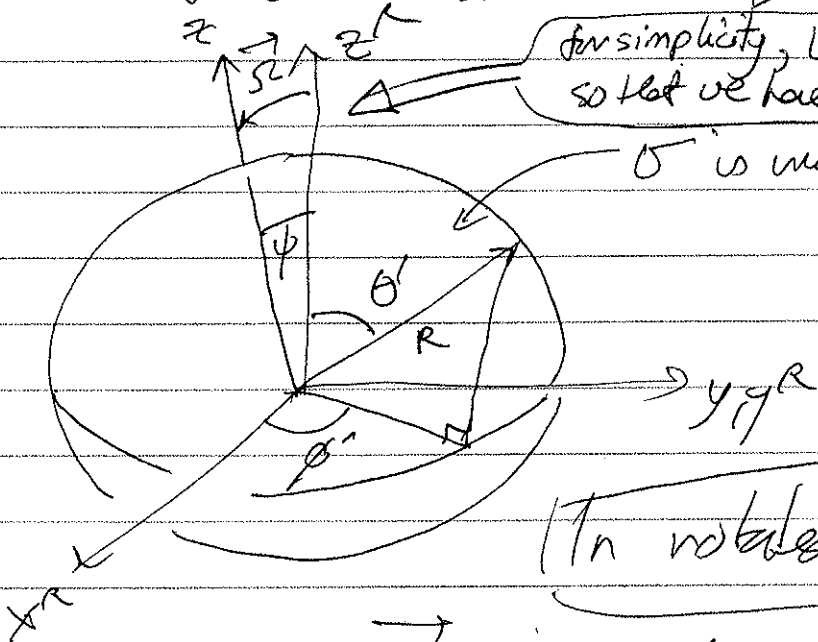 z Ω⃗ z^R
for simplicity, l
so that we have
σ is un
ψ θ' R
y, y^R
φ'
In rotates
x^R